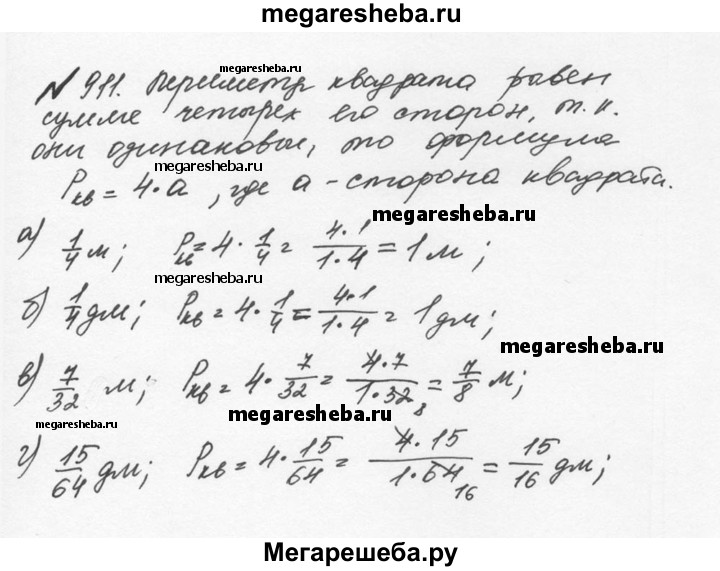 megaresheba.ru
N 911. Периметр квадрата равен
megaresheba.ru
сумме четырех его сторон, т.к.
они одинаковые, то формула
megaresheba.ru
Pкв = 4·a, где a - сторона квадрата.
megaresheba.ru
а) 1/4 м; Pкв = 4·1/4 = 4·1/1·4 = 1 м;
megaresheba.ru
б) 1/4 дм; Pкв = 4·1/4 = 4·1/1·4 = 1 дм;
megaresheba.ru
в) 7/32 м; Pкв = 4·7/32 = 4·7/1·32 8 = 7/8 м;
megaresheba.ru
megaresheba.ru
г) 15/64 дм; Pкв = 4·15/64 = 4·15/1·64 16 = 15/16 дм;
Мегарешеба.ру